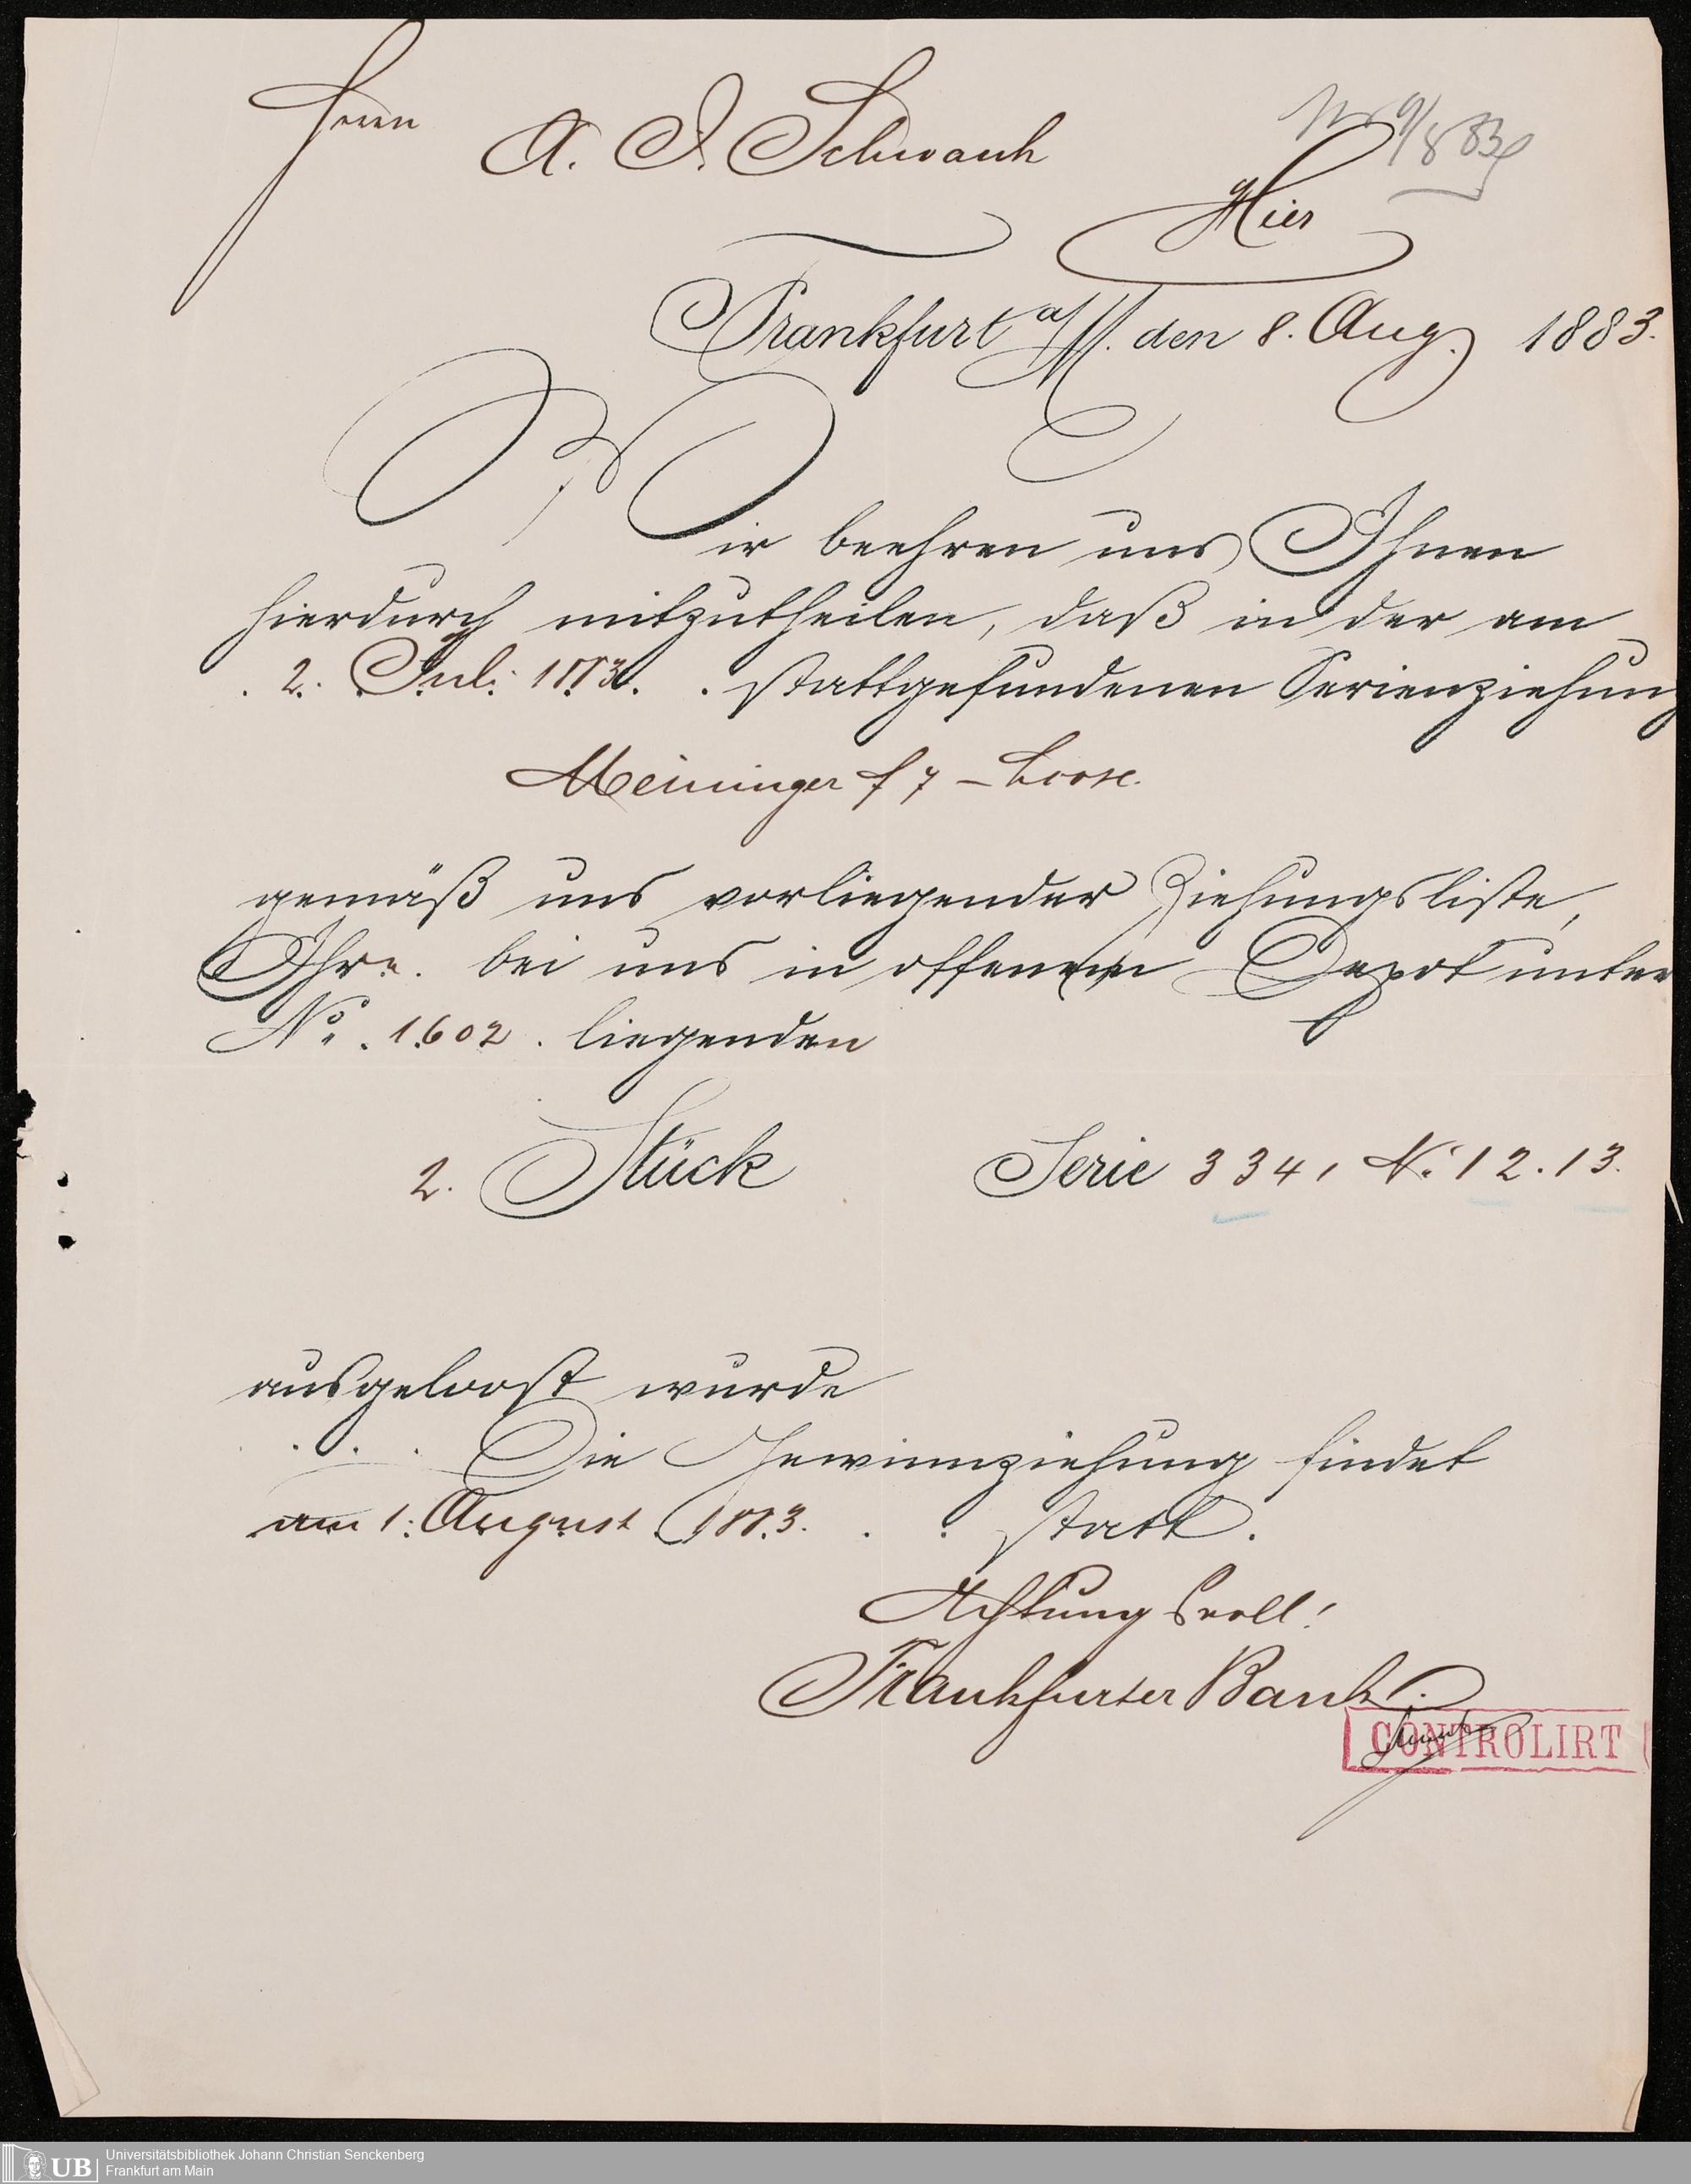 Herrn
A. J. Schwank
9/8 83
Hier
Frankfurt a/M. den 8. Aug. 1883.
Wir beehren uns Ihnen
hierdurch mitzutheilen, daß in der am
2. Juli 1883. stattgefundenen Serienziehung
Meininger f 7 – Loose.
gemäß uns vorliegender Ziehungsliste,
Ihre bei uns in offenem Depot unter
No. 1602. liegenden
2. Stück Serie 334, N. 12.13.
ausgeloost wurde
Die Gewinnziehung findet
am 1. August 1883. statt.
Achtungsvoll!
Frankfurter Bank.
CONTROLIRT
UB
Universitätsbibliothek Johann Christian Senckenberg
Frankfurt am Main